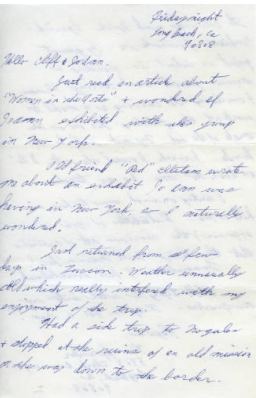 Friday night
Long Beach, Ca
90808
Hello Cliff &
Just read an article about
"Women in the Arts" & wondered if
exhibited with the group
in New York.
Old friend "Red" wrote
me about an exhibit was
having in New York, so I naturally
wondered.
Just returned from a few
days in Tucson. Weather unusually
cold which really interfered with my
enjoyment of the trip.
Had a side trip to Nogales
& stopped at the ruins of an old mission
on the way down to the border.